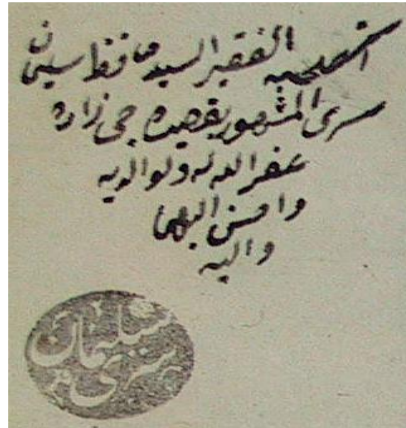 استصحبه الفقير السيد حافظ سليمان
سرى المشهور بقصيده جى زاده
غفر الله له ولوالديه
واحسن اليهما
واليه
سليمان
سرى